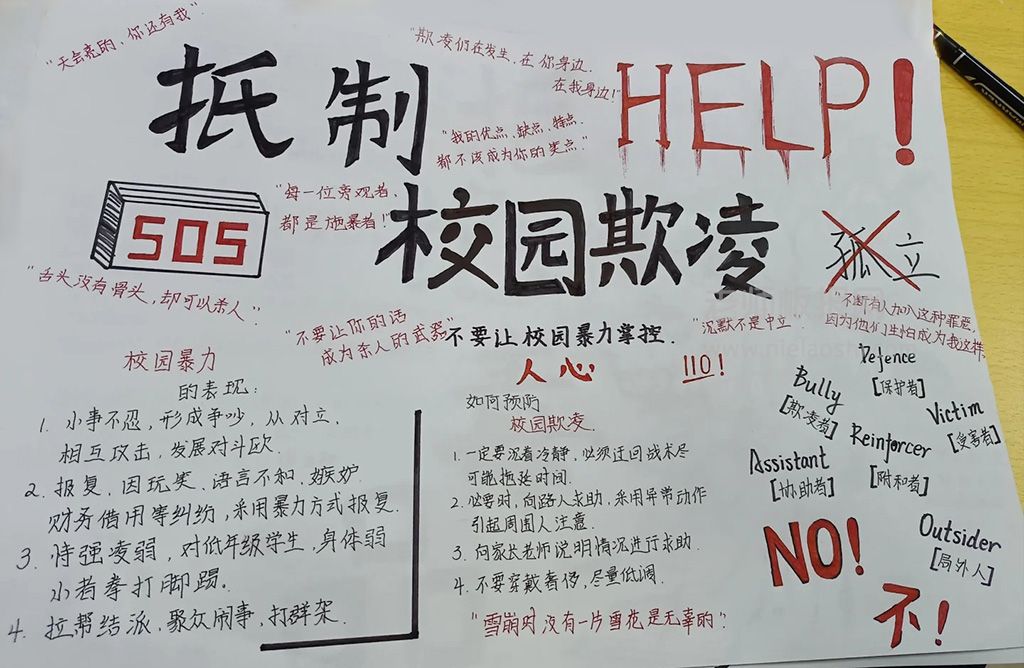 “天会亮的，你还有我”
“欺凌仍在发生，在你身边，
在我身边！”
抵制
HELP！
“我的优点、缺点、特点，
都不该成为你的笑点”
SOS
“每一位旁观者，
都是施暴者！”
校园欺凌
孤立
“舌头没有骨头，却可以杀人”
“不要让你的话
成为杀人的武器”
不要让校园暴力掌控
人心
“沉默不是中立”
“不断有人加入这种罪恶，
因为他们生怕成为我这样
110！
校园暴力
的表现：
1. 小事不忍，形成争吵，从对立，
相互攻击，发展对斗殴.
2. 报复、因玩笑、语言不和、嫉妒.
财务借用等纠纷，采用暴力方式报复.
3. 恃强凌弱，对低年级学生，身体弱
小者拳打脚踢。
4. 拉帮结派，聚众闹事，打群架.
如何预防
校园欺凌.
1. 一定要沉着冷静，必须迂回战术尽
可能拖延时间.
2. 必要时，向路人求助，采用异常动作
引起周围人注意.
3. 向家长老师说明情况进行求助.
4. 不要穿戴奢侈，尽量低调.
“雪崩时没有一片雪花是无辜的？
Defence
[保护者]
Bully
[欺凌者]
Victim
[受害者]
Reinforcer
[附和者]
Assistant
[协助者]
NO!
Outsider
[局外人]
不！